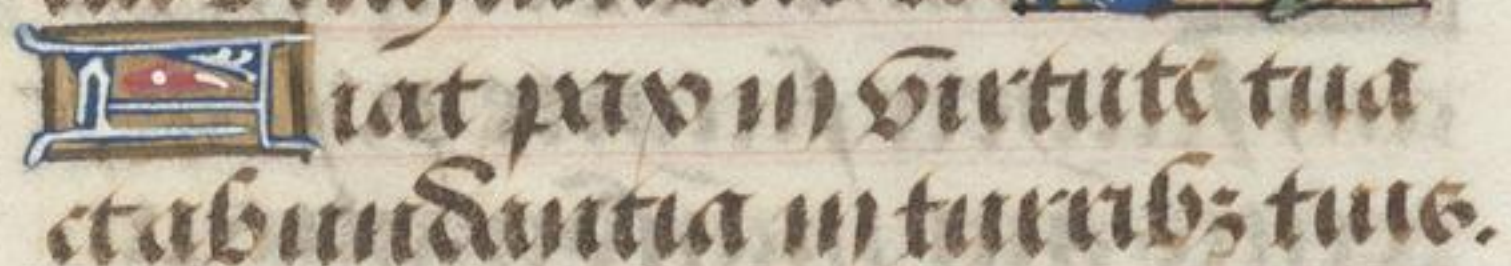 Fiat pax in virtute tua
et abundantia in turribz tuis.